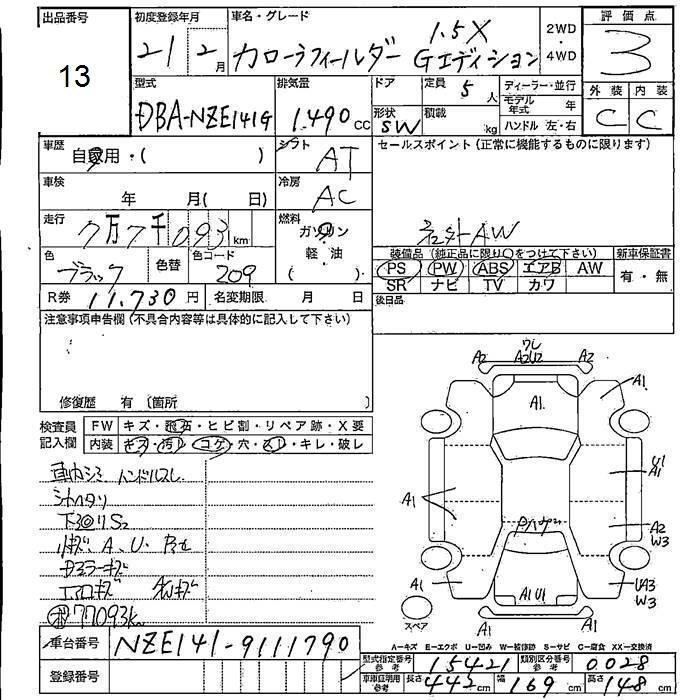 出品番号 初度登録年月 車名・グレード 2WD 評価点
13 21 2月 カローラフィールダー 1.5X Gエディション ・ 4WD 3
型式 排気量 ドア 定員 5人 ディーラー・並行 外装 内装
DBA-NZE141G 1.490cc 形状 SW 積載 kg モデル年式 年 C C
ハンドル 左・右
車歴 自家用・( ) シフト AT セールスポイント(正常に機能するものに限ります)
車検 年 月( 日) 冷房 AC
走行 7万7千093km 燃料 ガソリン 社外AW
軽油
色 ブラック 色替 色コード 209 ( ) 装備品(純正品に限り○をつけて下さい) 新車保証書
PS PW ABS エアB AW 有・無
R券 11,730円 名変期限 月 日 SR ナビ TV カワ
後日品
注意事項申告欄(不具合内容等は具体的に記入して下さい)
修復歴 有 (箇所 )
検査員記入欄 FW キズ・飛石・ヒビ割・リペア跡・X要
内装 キズ・汚・コゲ・穴・スレ・キレ・破レ
ハンドルスレ
シートヘタリ
下廻りS2
小キズ、A、U
ミラーキズ
エアロキズ AWキズ
77093km
車台番号 NZE141-9111790
登録番号
ウレ
A2 A2U2 A2
A1 A1
U1
A1
A1
A2
W3
A1 A1U1 UA3
W3
A1 A1
スペア
A=キズ E=エクボ U=凹み W=補修跡 S=サビ C=腐食 XX=交換済
型式指定番号 参考 15421 類別区分番号 参考 0028
車庫証明用 参考 長さ 442cm 幅 169cm 高さ 148cm